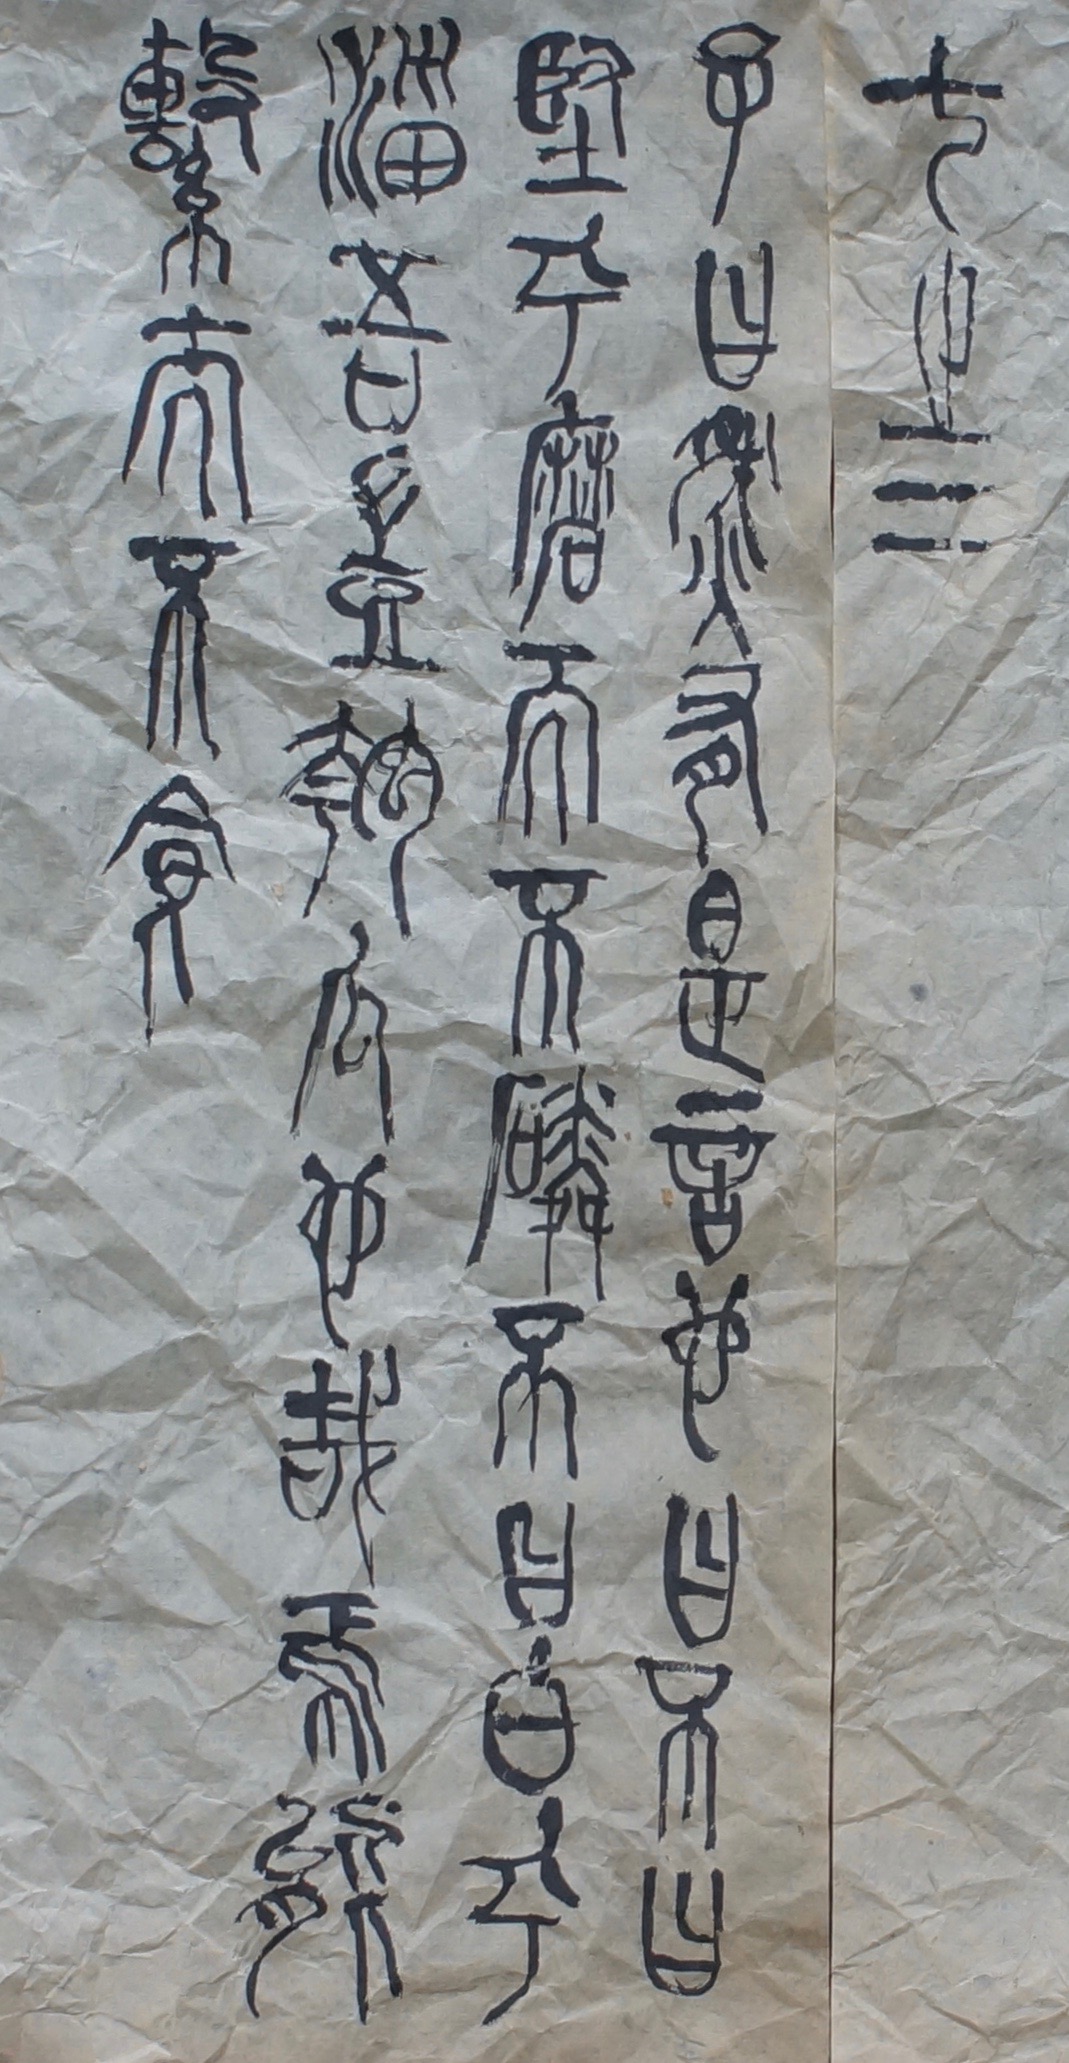 七之二
子曰然有是言也曰不曰
堅乎磨而不磷不曰白乎
淄吾豈匏瓜也哉焉能
繫而不食